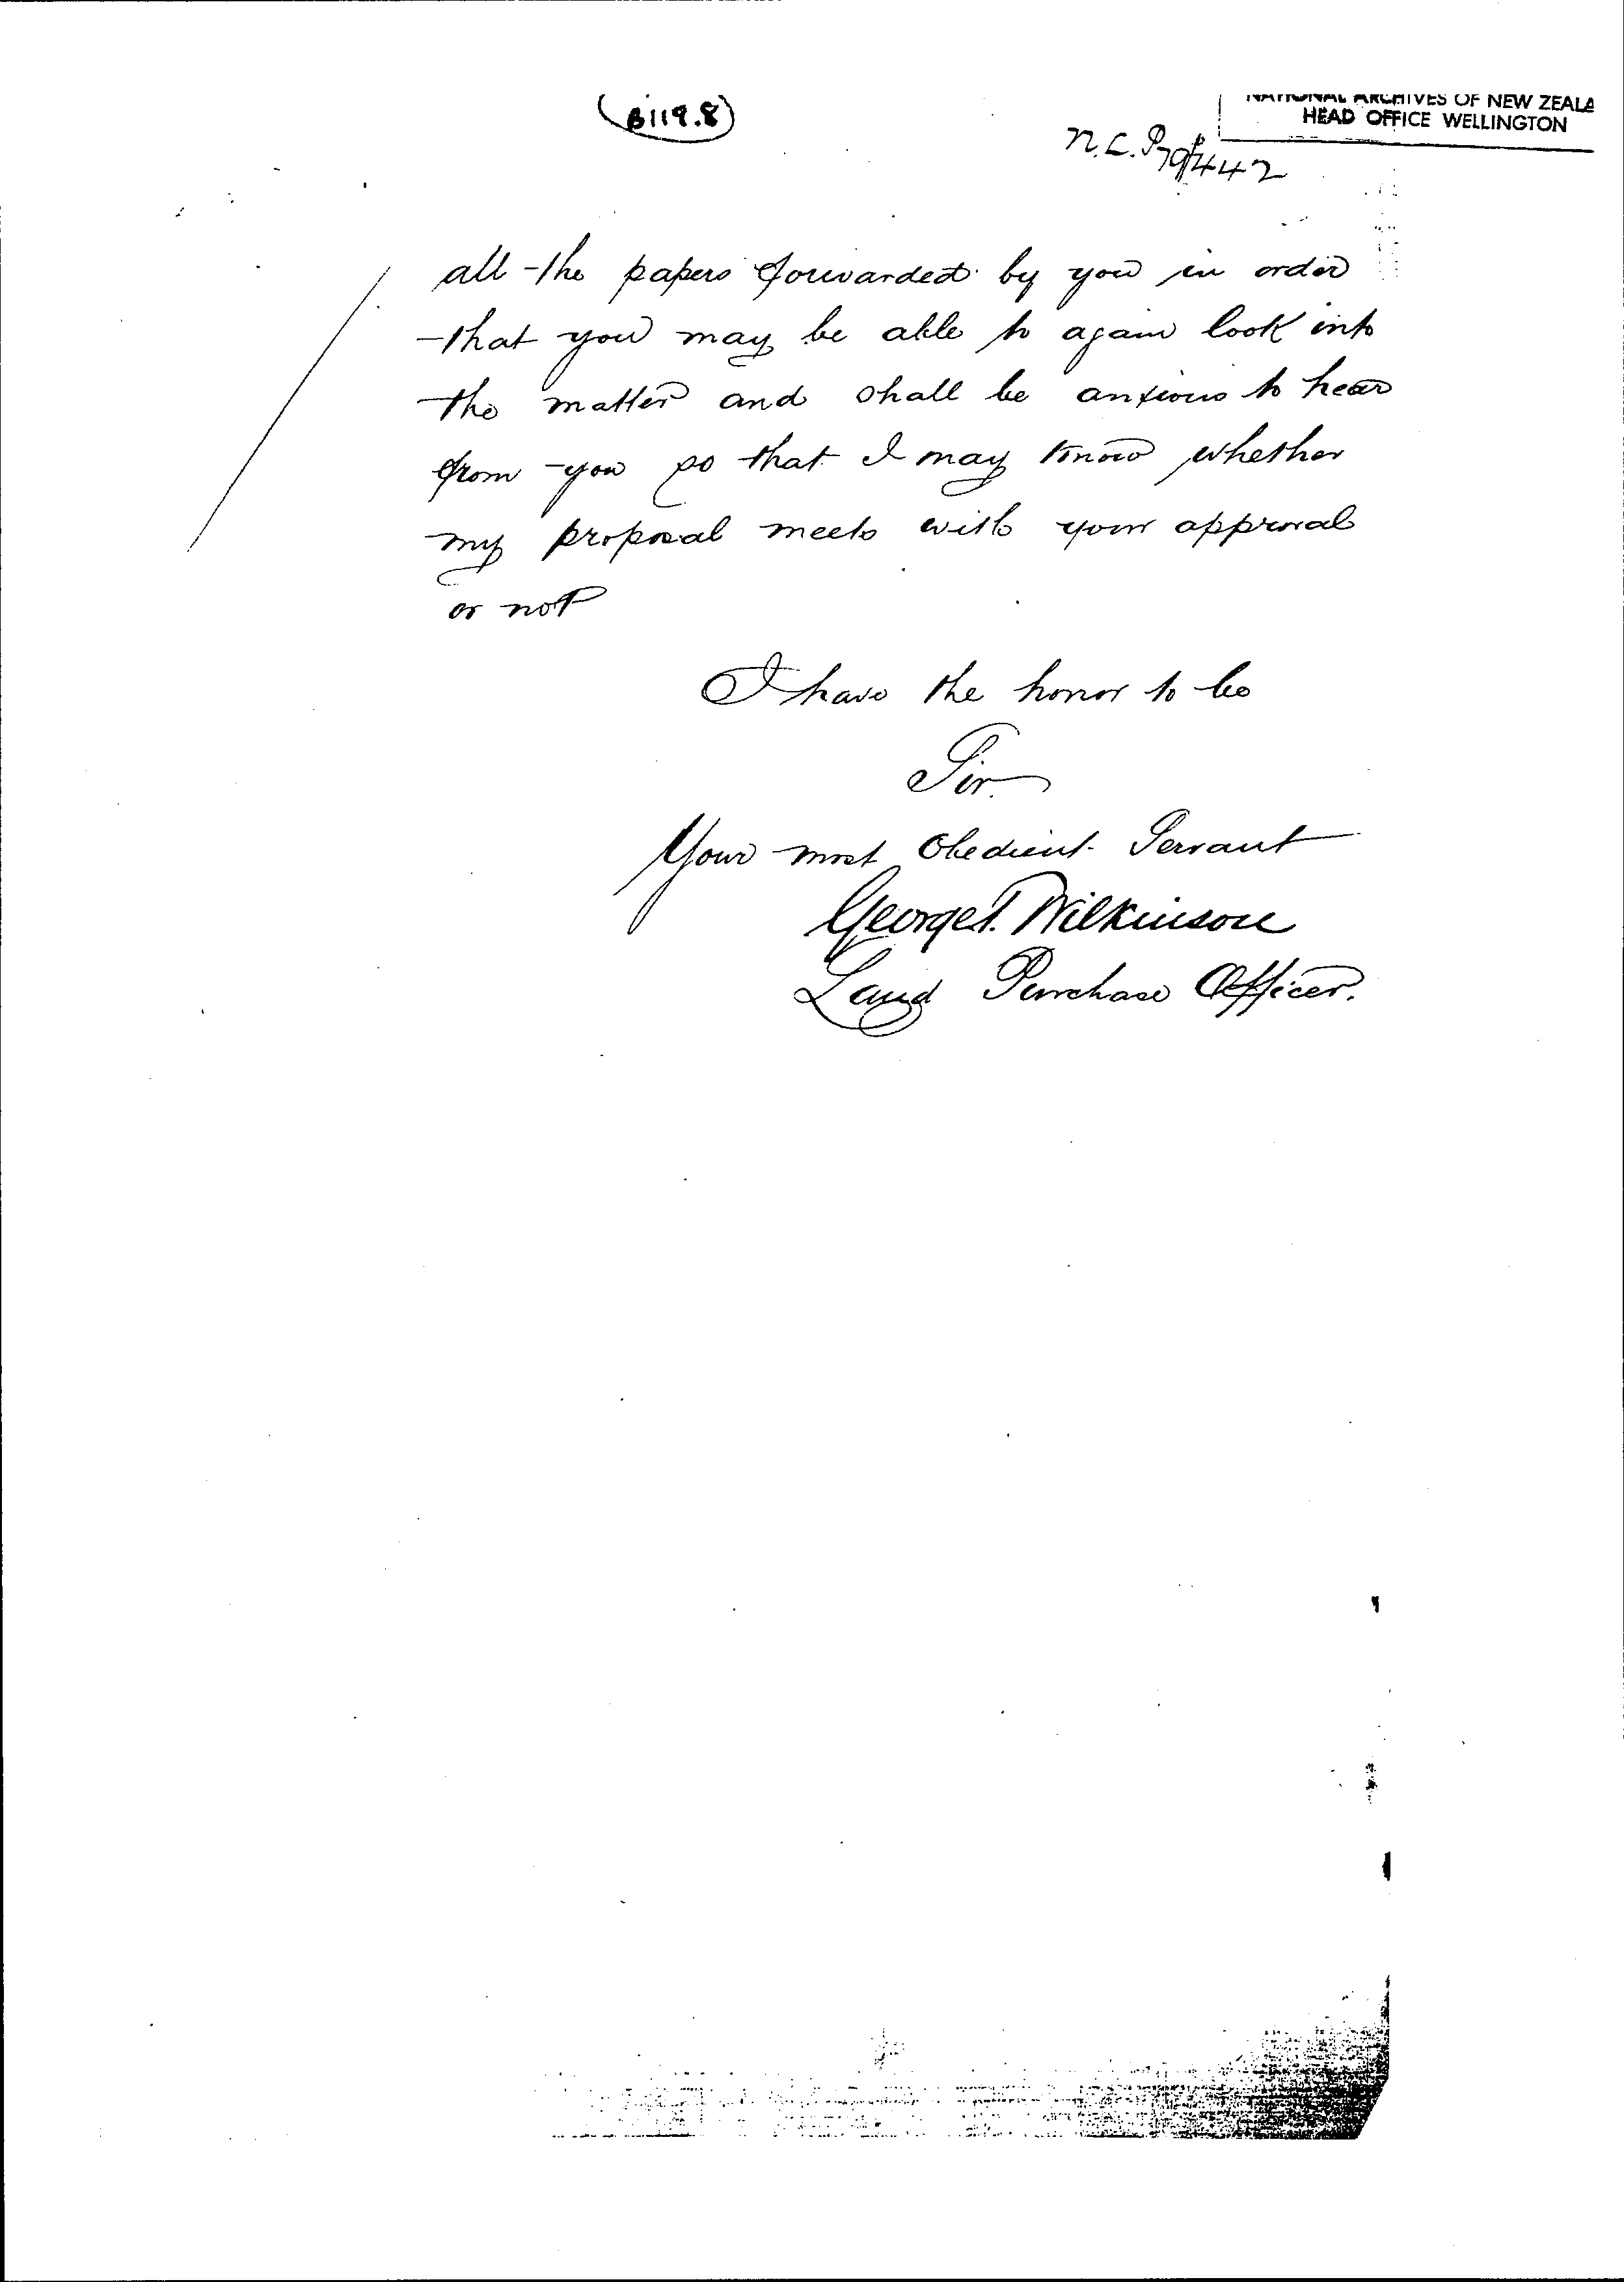 (B119.8)
NATIONAL ARCHIVES OF NEW ZEALA
HEAD OFFICE WELLINGTON
N.L.P 79/442
all the papers forwarded by you in order
that you may be able to again look into
the matter and shall be anxious to hear
from you so that I may know whether
my proposal meets with your approval
or not
I have the honor to be
Sir.
Your most Obedient Servant
George T. Wilkinson
Land Purchase Officer.